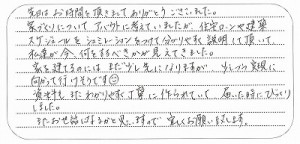 先日はお時間を頂きましてありがとうございました。
家づくりについてアバウトに考えていましたが、住宅ローンや建築
スケジュールをシュミレーションをつけて分かりやすく説明して頂いて、
私達が今、何をするべきかが見えてきました。
家を建てるのにはまだ少し先になりますが、少しづつ実現に
向かって行けそうです
資料もまたわかりやすく丁寧に作られていて、届いた時にびっくり
しました。
またお世話になるかと思いますので宜しくお願いします。